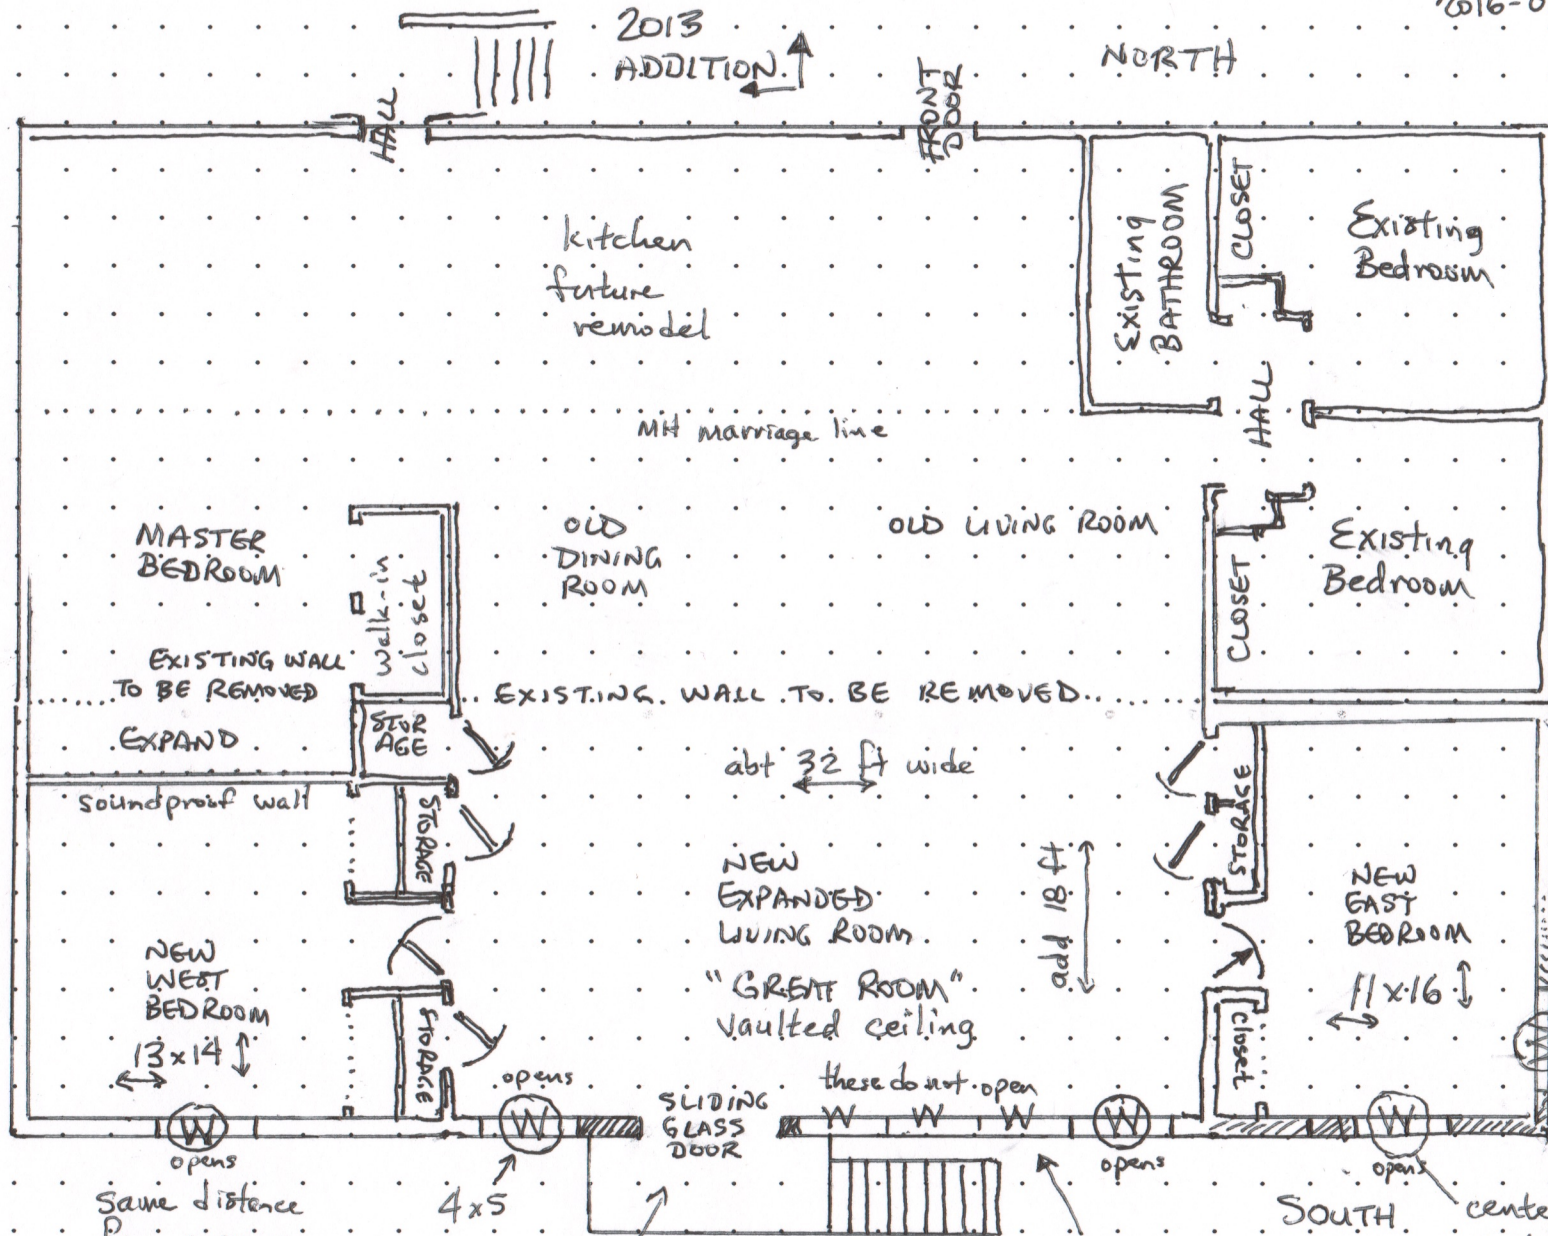 2013
ADDITION
NORTH
2016-0
HALL
FRONT
DOOR
kitchen
future
remodel
Existing
BATHROOM
CLOSET
Existing
Bedroom
HALL
MH marriage line
MASTER
BEDROOM
Walk-in
closet
OLD
DINING
ROOM
OLD LIVING ROOM
CLOSET
Existing
Bedroom
EXISTING WALL
TO BE REMOVED
EXISTING WALL TO BE REMOVED
EXPAND
STOR
AGE
abt 32 ft wide
soundproof wall
STORAGE
STORAGE
NEW
EXPANDED
LIVING ROOM
"GREAT ROOM"
Vaulted ceiling
add 18 ft
NEW
EAST
BEDROOM
11x16
NEW
WEST
BEDROOM
13x14
STORAGE
closet
opens
these do not open
SLIDING
GLASS
DOOR
W
W
W
W
W
W
W
W
opens
opens
opens
Same distance
4x5
SOUTH
cente